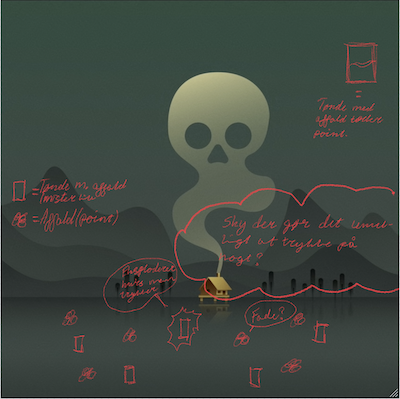 =
Tønde med
affald tæller
point.
= Tønde m. affald
(mister liv)
= Affald (point)
Sky der gør det umu-
ligt at trykke på
noget?
Eksploderer
hvis man
trykker
Fade?